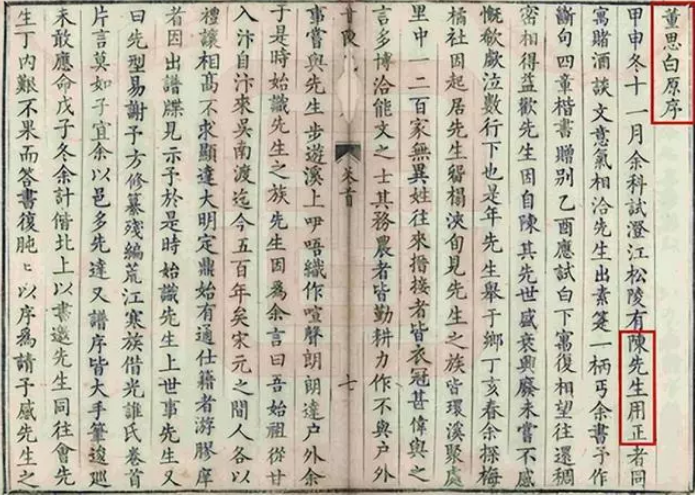 董思白原序
甲申冬十一月余科試澄江松陵有陳先生用正者同
寓賭酒談文意氣相洽先生出素箑一柄丐余書予作
斷句四章楷書贈別乙酉應試白下寓復相望往還稠
密相得益歡先生因自陳其先世盛衰興廢未嘗不感
慨欷歔泣數行下也是年先生舉于鄉丁亥春余探梅
橘社因起居先生留榻浹旬見先生之族皆環溪聚處
里中一二百家無異姓往來搢接者皆衣冠甚偉與之
言多博洽能文之士其務農者皆勤耕力作不與戶外
陳
卷首
七
事嘗與先生步遊溪上咿唔織作喧聲朗朗達户外余
于是時始識先生之族先生因為余言曰吾始祖從甘
入汴自汴來吳南渡迄今五百年矣宋元之間人各以
禮讓相髙不求顯達大明定鼎始有通仕籍者游膠庠
者因出譜牒見示于於是時始識先生上世事先生又
曰先型易謝予方修纂殘編荒江寒族借光誰氏卷首
片言莫如子宜余以邑多先達又譜序皆大手筆逡廵
未敢應命戊子冬余計偕北上以書邀先生同往會先
生丁内艱不果而答書復肫〻以序為請予感先生之